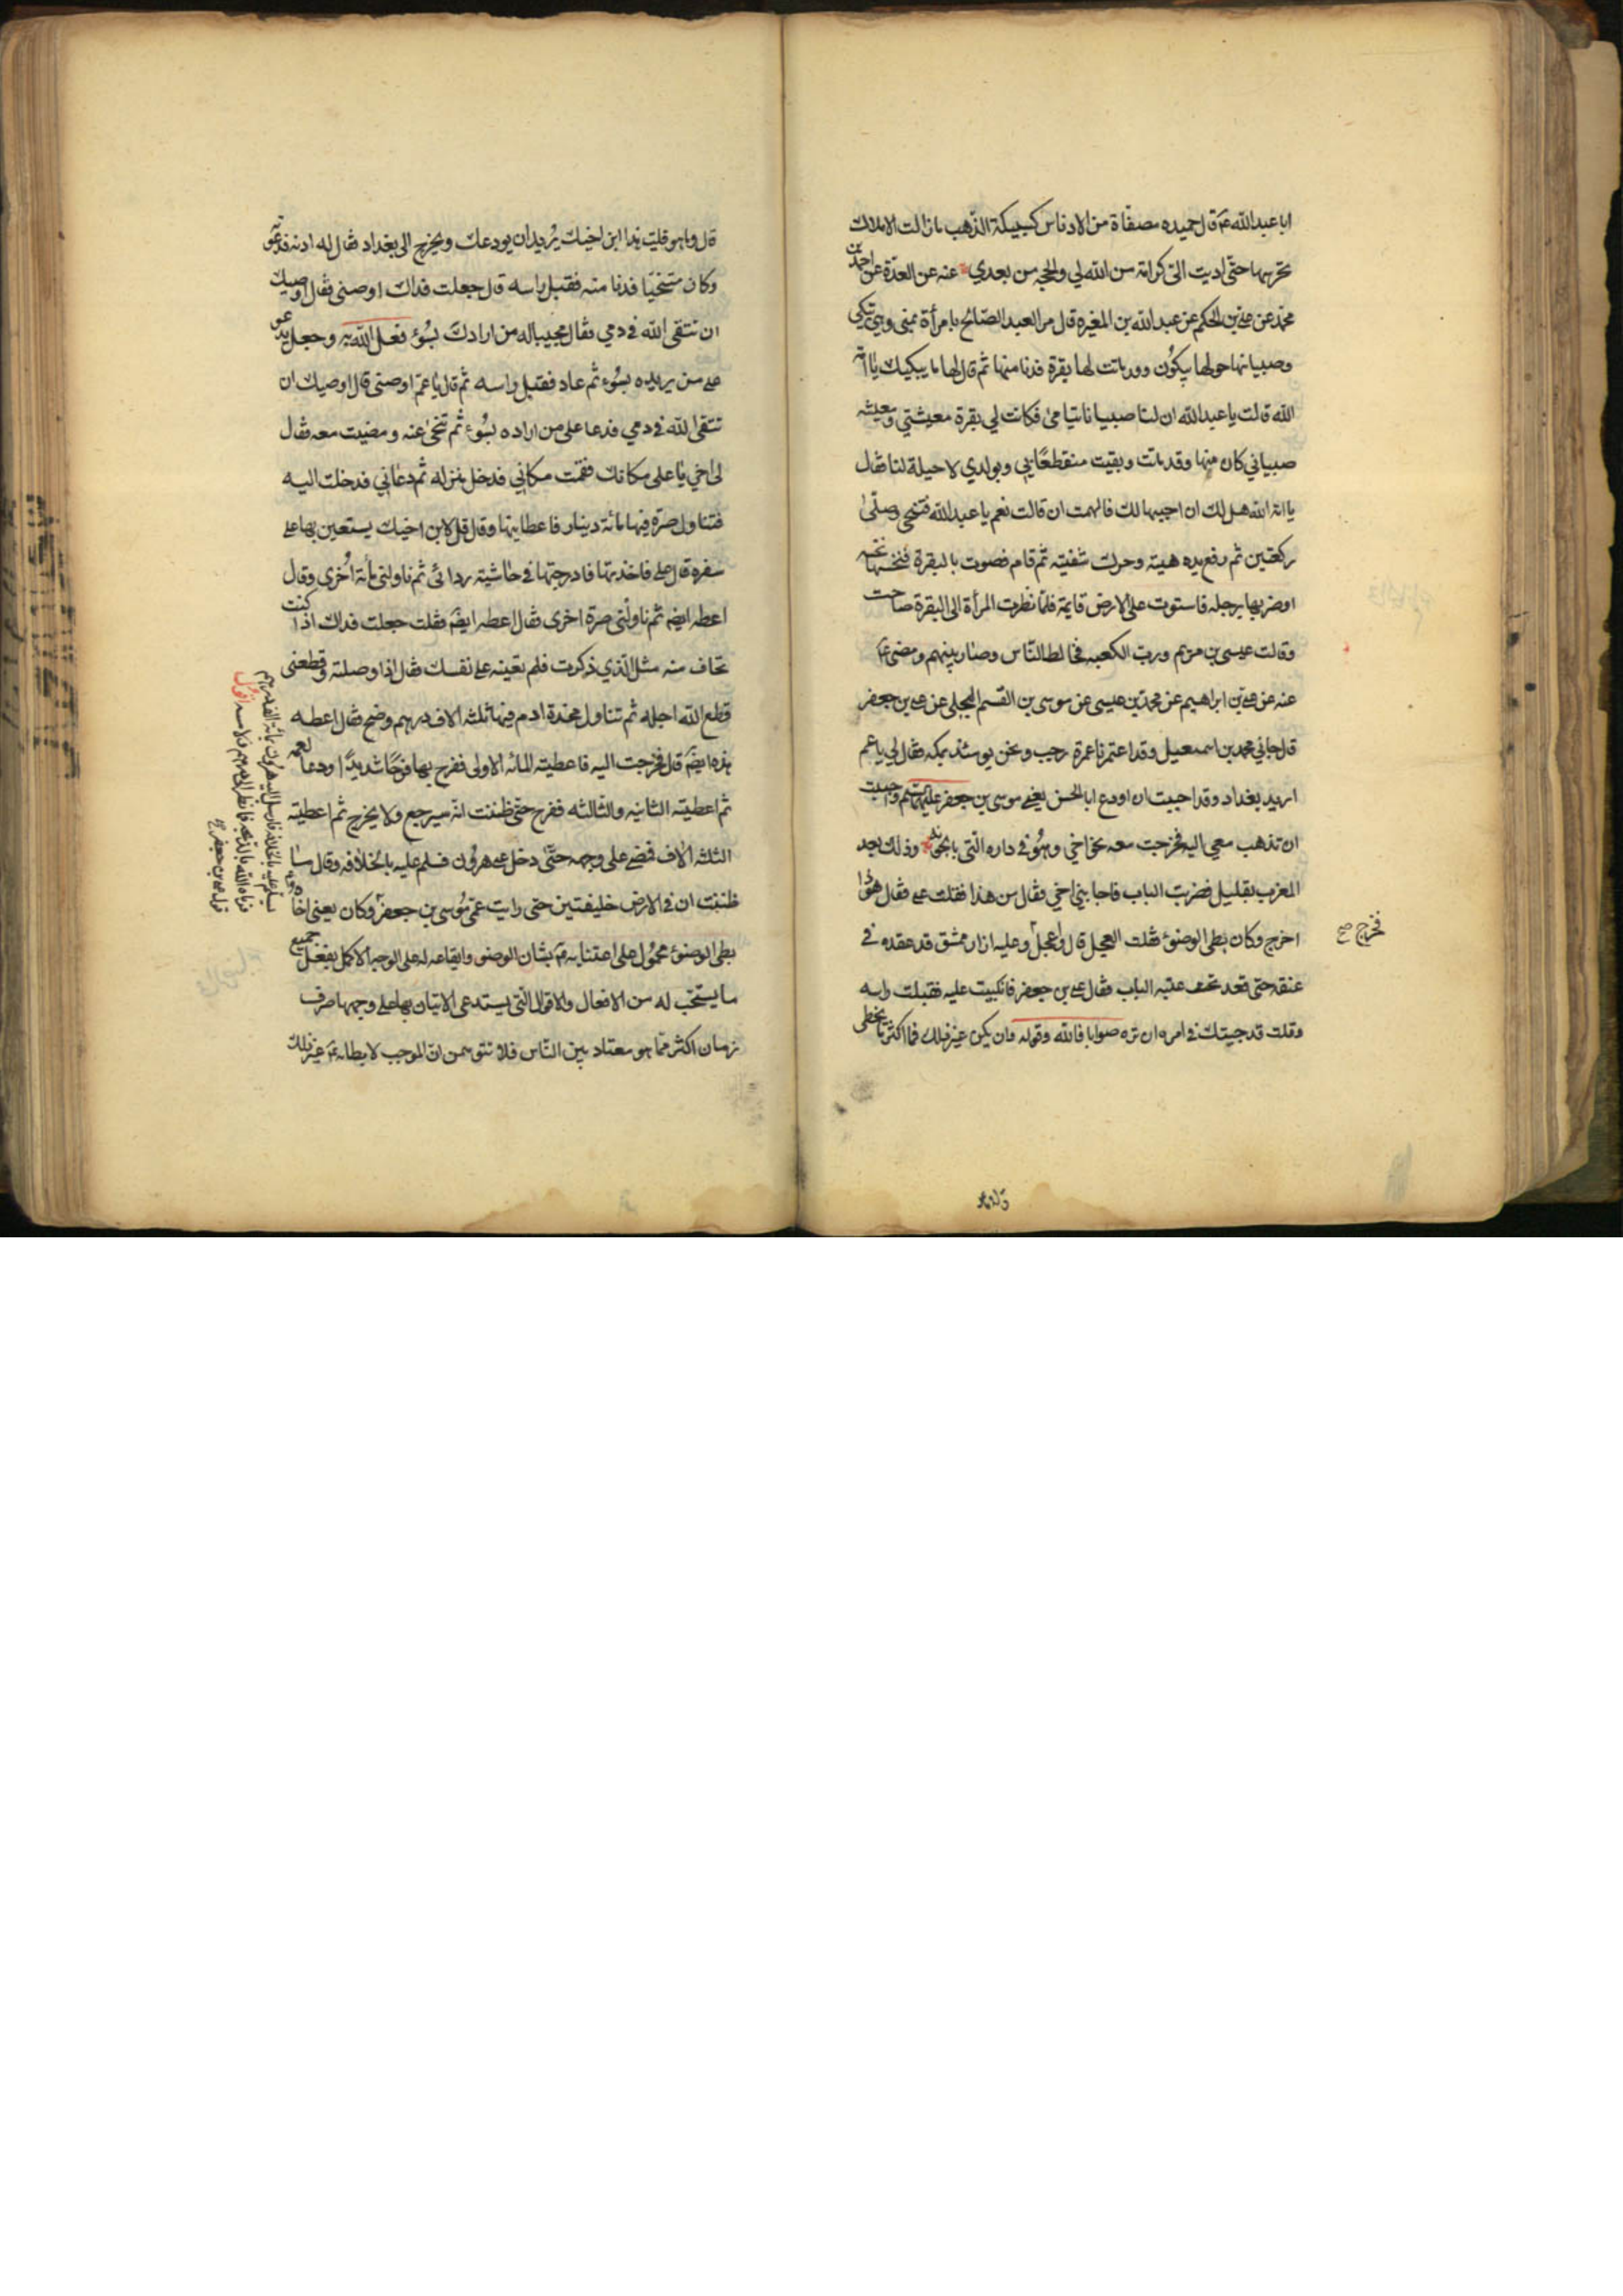 ابا عبدالله عم قال حميده مصفاة من الادناس كسبيكة الذهب ما زالت الاملاك
تحرسها حتى اديت الى كرامة من الله لي والحجه من بعدي عنه عن العدة عن احمد بن
محمد عن علي بن الحكم عن عبدالله بن المغيره قال مر العبد الصالح بامرأة بمنى وهي تبكي
وصبيانها حولها يبكون وقد ماتت لها بقرة فدنا منها ثم قال لها ما يبكيك يا امة
الله قالت يا عبدالله ان لنا صبيانا يتامى فكانت لي بقرة معيشتي ومعيشة
صبياني كان منها وقد ماتت وبقيت منقطعا بي وبولدي لا حيلة لنا فقال
يا امة الله هل لك ان احييها لك فالهمت ان قالت نعم يا عبدالله فتنحى وصلى
ركعتين ثم رفع يده هنيئة وحرك شفتيه ثم قام فصوت بالبقرة فنخسها نخسة
او ضربها برجله فاستوت على الارض قايمة فلما نظرت المرأة الى البقرة صاحت
وقالت عيسى بن مريم ورب الكعبه فخالط الناس وصار بينهم ومضى ع
عنه عن علي بن ابراهيم عن محمد بن عيسى عن موسى بن القسم البجلي عن علي بن جعفر
قال جاني محمد بن اسمعيل وقد اعتمرنا عمرة رجب ونحن يومئذ بمكه فقال لي يا عم
اريد بغداد وقد احببت ان اودع ابا الحسن يعني موسى بن جعفر عليهما السلم واحببت
ان تذهب معي اليه فخرجت معه نحو اخي وهو في داره التي بالحوبة وذلك بعد
المغرب بقليل فضربت الباب فاجابني اخي فقال من هذا فقلت علي فقال هوذا
اخرج وكان بطي الوضوء فقلت العجل قال واعجل وعليه ازار ممشق قد عقده في
فخرج صح
عنقه حتى قعد تحت عتبه الباب فقال علي بن جعفر فانكببت عليه فقبلت راسه
وقلت قد جيتك في امر ان تره صوابا فالله وفق له وان يكن غير ذلك فما اكثر ما نخطي
قال وما هو
قال وما هو قلت هذا ابن اخيك يريد ان يودعك ويخرج الى بغداد فقال له ادنه فدعوته
وكان متنحيا فدنا منه فقبل راسه قال جعلت فداك اوصني فقال اوصيك
ان تتقي الله في دمي فقال مجيبا له من ارادك بسوء فعل الله به وجعل يدعو
على من يريده بسوء ثم عاد فقبل راسه ثم قال يا عم اوصني قال اوصيك ان
تتقي الله في دمي فدعا على من اراده بسوء ثم تنحى عنه ومضيت معه فقال
لي اخي يا على مكانك فقمت مكاني فدخل منزله ثم دعاني فدخلت اليه
فتناول صرة فيها مائة دينار فاعطانيها وقال قل لابن اخيك يستعين بها على
سفره قال على فاخذتها فادرجتها في حاشية ردائي ثم ناولني مأئة اخرى وقال
اعطه ايضا ثم ناولني صرة اخرى فقال اعطه ايضا فقلت جعلت فداك اذا كنت
تخاف منه مثل الذي ذكرت فلم تعينه على نفسك فقال اذا وصلته وقطعني
قطع الله اجله ثم تناول مخدة ادم فيها ثلثه الاف درهم وضح فقال اعطه
هذه ايضا قال فخرجت اليه فاعطيته المائه الاولى ففرح بها فرحا شديدا ودعا لعمه
ثم اعطيته الثانيه والثالثه ففرح حتى ظننت انه سيرجع ولا يخرج ثم اعطيته
الثلثه الالاف فمضى على وجهه حتى دخل على هرون فسلم عليه بالخلافه وقال ما
ظننت ان في الارض خليفتين حتى رايت عمي موسى بن جعفر وكان يعني اخا
بطي الوضوء محمول على اعتنايه عم بشان الوضوء وايقاعه له على الوجه الاكمل بفعل جميع
ما يستحب له من الافعال والاقوال التي يستدعى الاتيان بها على وجهها صرف
زمان اكثر مما هو معتاد بين الناس فلا تتوهمن ان الموجب لابطائه عم غير ذلك
يسلم عليه بالخلافه فارسل اليه هرون بمائة الف درهم
فرماه الله بالذبحه فما نظر الى درهم ولا مسه اقول
قوله علي بن جعفر